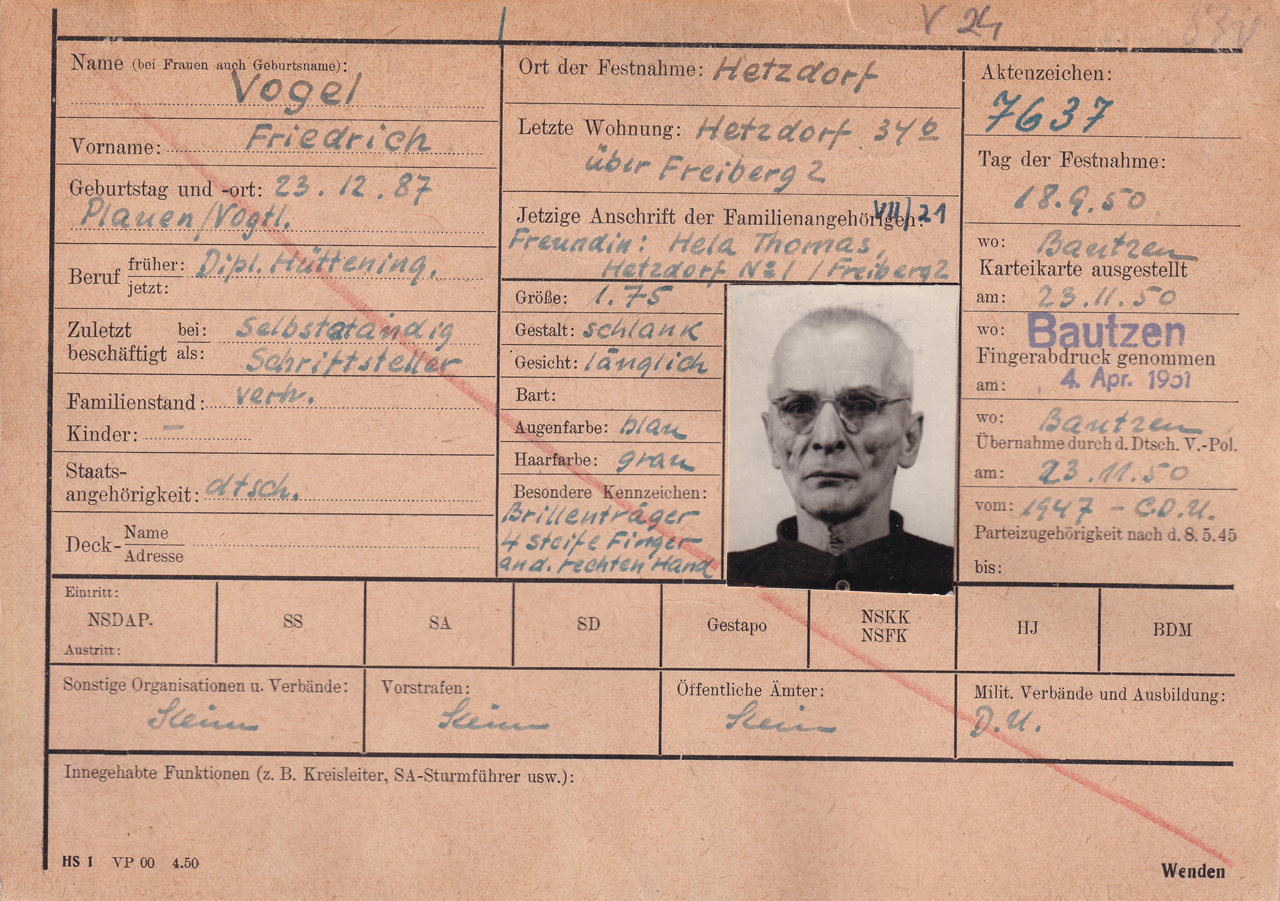 V 24
Name (bei Frauen auch Geburtsname):
Vogel
Vorname: Friedrich
Geburtstag und -ort: 23.12.87
Plauen/Vogtl.
Beruf früher: Dipl. Hüttening.
jetzt:
Zuletzt beschäftigt bei: Selbstständig
als: Schriftsteller
Familienstand: verh.
Kinder: –
Staats-
angehörigkeit: dtsch.
Deck- Name
Adresse
Ort der Festnahme: Hetzdorf
Letzte Wohnung: Hetzdorf 34b
über Freiberg 2
Jetzige Anschrift der Familienangehörigen: VII/21
Freundin: Hela Thomas,
Hetzdorf No 1 / Freiberg 2
Größe: 1.75
Gestalt: schlank
Gesicht: länglich
Bart:
Augenfarbe: blau
Haarfarbe: grau
Besondere Kennzeichen:
Brillenträger
4 steife Finger
an d. rechten Hand
Aktenzeichen:
7637
Tag der Festnahme:
18.9.50
wo: Bautzen
Karteikarte ausgestellt
am: 23.11.50
wo: Bautzen
Fingerabdruck genommen
am: 4. Apr. 1951
wo: Bautzen
Übernahme durch d. Dtsch. V.-Pol.
am: 23.11.50
vom: 1947 – C.D.U.
Parteizugehörigkeit nach d. 8.5.45
bis:
Eintritt:
NSDAP. SS SA SD Gestapo NSKK NSFK HJ BDM
Austritt:
Sonstige Organisationen u. Verbände: Vorstrafen: Öffentliche Ämter: Milit. Verbände und Ausbildung:
D.U.
Innegehabte Funktionen (z. B. Kreisleiter, SA-Sturmführer usw.):
HS 1 VP 00 4.50
Wenden